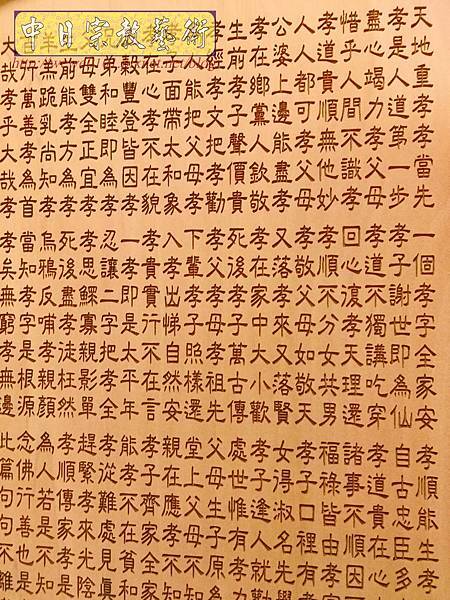 中日宗教藝術
天地重孝孝當先
孝是人道第一步
盡心竭力孝父母
惜乎人間不識孝
孝道貴順無他妙
人人都可孝父母
公婆上邊能盡孝
孝在鄉黨人欽敬
生前孝子聲價貴
孝經孝文把孝勸
能把父母孝
子面帶太和象
在心孝不在貌
穀豐登皆因孝
弟和睦即為孝
母雙全正宜孝
前能孝方為孝
羔跪乳尚知孝
行萬善孝為首
大哉孝乎大哉孝
一個孝字全家安
孝子謝世即為仙
孝道不獨講吃穿
回心復孝天理還
孝順不分女共男
孝敬父母如敬天
又落孝來又落賢
孝在家中大小歡
死後孝子萬古傳
孝父孝母孝祖先
下輩孝子照樣還
入孝出悌自然安
孝貴實行不在言
一孝即是太平年
忍讓二字把孝全
孝思鰥寡親影單
死後盡孝徒枉然
烏鴉反哺孝親顏
當知孝字是根源
孝矣無窮孝無邊
孝順能生孝
自古忠臣多
孝道貴在心
諸事不順因
福祿皆由孝
孝子口裡有孝
女得淑名先
孝子逢人就
處世惟有孝
父母生子原
堂上父母不
親在應孝不
孝子齊家全家
能孝不在貧和
孝從難處見真
趕緊孝來光陰
孝順傳家孝是
為人若是不知
念佛行善也是
此篇句句不離